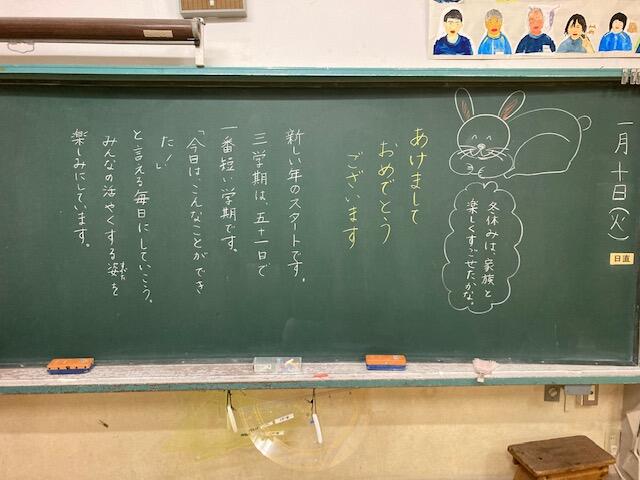 一月十日(火)
日直
冬休みは、家族と
楽しくすごせたかな。
あけまして
おめでとう
ございます
新しい年のスタートです。
三学期は、五十一日で
一番短い学期です。
「今日はこんなことができ
た!」
と言える毎日にしていこう。
みんなの活やくする姿を
すがた
楽しみにしています。